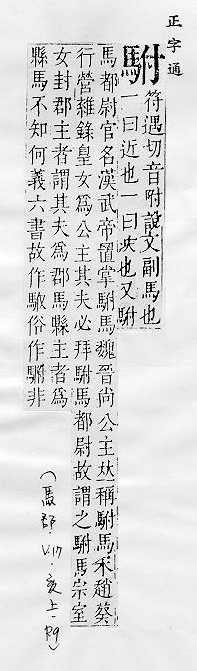 正字通
駙
符遇切音附說文副馬也
一曰近也一曰疾也又駙
馬都尉官名漢武帝置掌駙馬魏晉尚公主𠀤稱駙馬宋趙葵
行營雜錄皇女為公主其夫必拜駙馬都尉故謂之駙馬宗室
女封郡主者謂其夫為郡馬縣主者為
縣馬不知何義六書故作𩢲俗作𩦠非